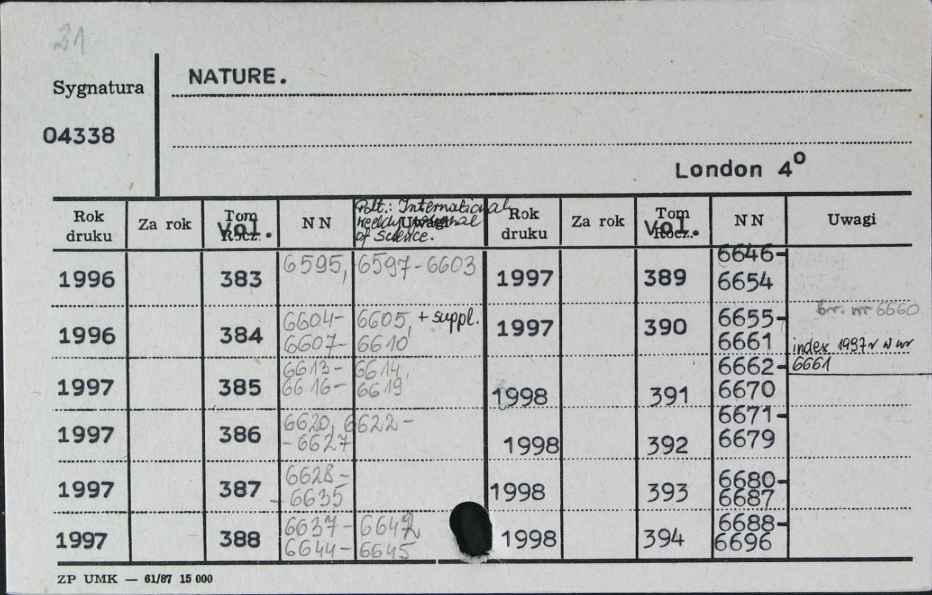 31
Sygnatura
NATURE.
04338
London 4º
Rok druku Za rok Tom Vol. Rocz. NN Uwagi Rok druku Za rok Tom Vol. Rocz. NN Uwagi
Podt.: International
weekly journal
of Science.
1996 383 6595, 6597-6603
1996 384 6604- 6605, + suppl.
6607- 6610
1997 385 6613- 6614,
6616- 6619
1997 386 6620, 6622-
-6627
1997 387 6628-
- 6635
1997 388 6637- 6642,
6644- 6645
1997 389 6646-
6654
br. nr 6660
1997 390 6655-
6661
index 1997 r w nr
6661
1998 391 6662-
6670
1998 392 6671-
6679
1998 393 6680-
6687
1998 394 6688-
6696
ZP UMK — 61/87 15 000